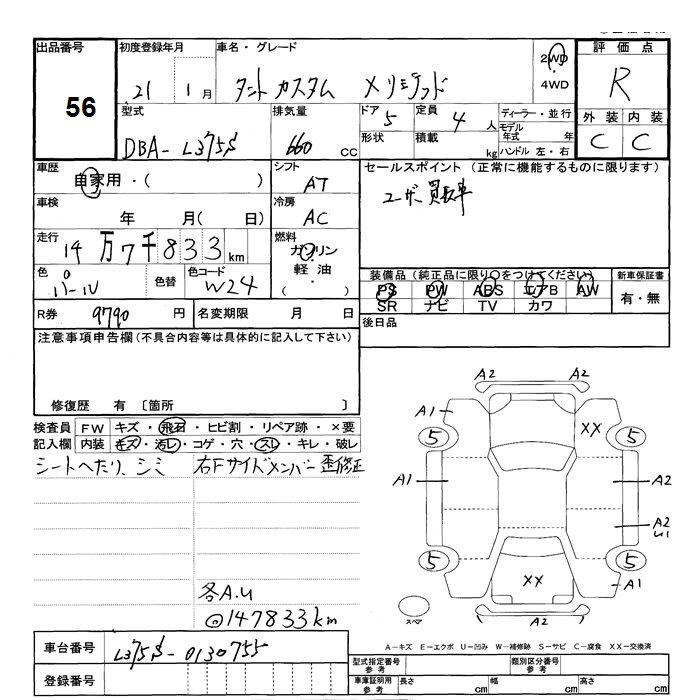 出品番号
56
初度登録年月
21 1月
車名・グレード
タント カスタム メモリミテッド
2WD
4WD
評価点
R
型式
DBA-L375S
排気量
660 CC
ドア 5
定員 4 人
ディーラー・並行
モデル年式 年
形状
積載 kg
ハンドル 左・右
外装 内装
C C
車歴
自家用・( )
シフト
AT
セールスポイント (正常に機能するものに限ります)
ユーザー買取車
車検
年 月( 日)
冷房
AC
走行
14万7千833km
燃料
ガソリン
軽油
・
( )
色
パール
色替
色コード
W24
装備品 (純正品に限り○をつけてください)
PS PW ABS エアB AW
SR ナビ TV カワ
新車保証書
有・無
R券 9790 円
名変期限 月 日
後日品
注意事項申告欄 (不具合内容等は具体的に記入して下さい)
修復歴 有 〔箇所 〕
検査員 FW キズ・飛石・ヒビ割・リペア跡・×要
記入欄 内装 キズ・汚レ・コゲ・穴・スレ・キレ・破レ
シートへたり、シミ
右Fサイドメンバー歪修正
各A.U
@147833km
A2 A2
A1 XX
5 5
A1 A2
A2
U1
5 5
XX A1
A2
スペア
A-キズ E-エクボ U-凹み W-補修跡 S-サビ C-腐食 XX-交換済
車台番号
L375S-0130755
登録番号
型式指定番号
参考
類別区分番号
参考
車庫証明用
参考
長さ cm 幅 cm 高さ cm